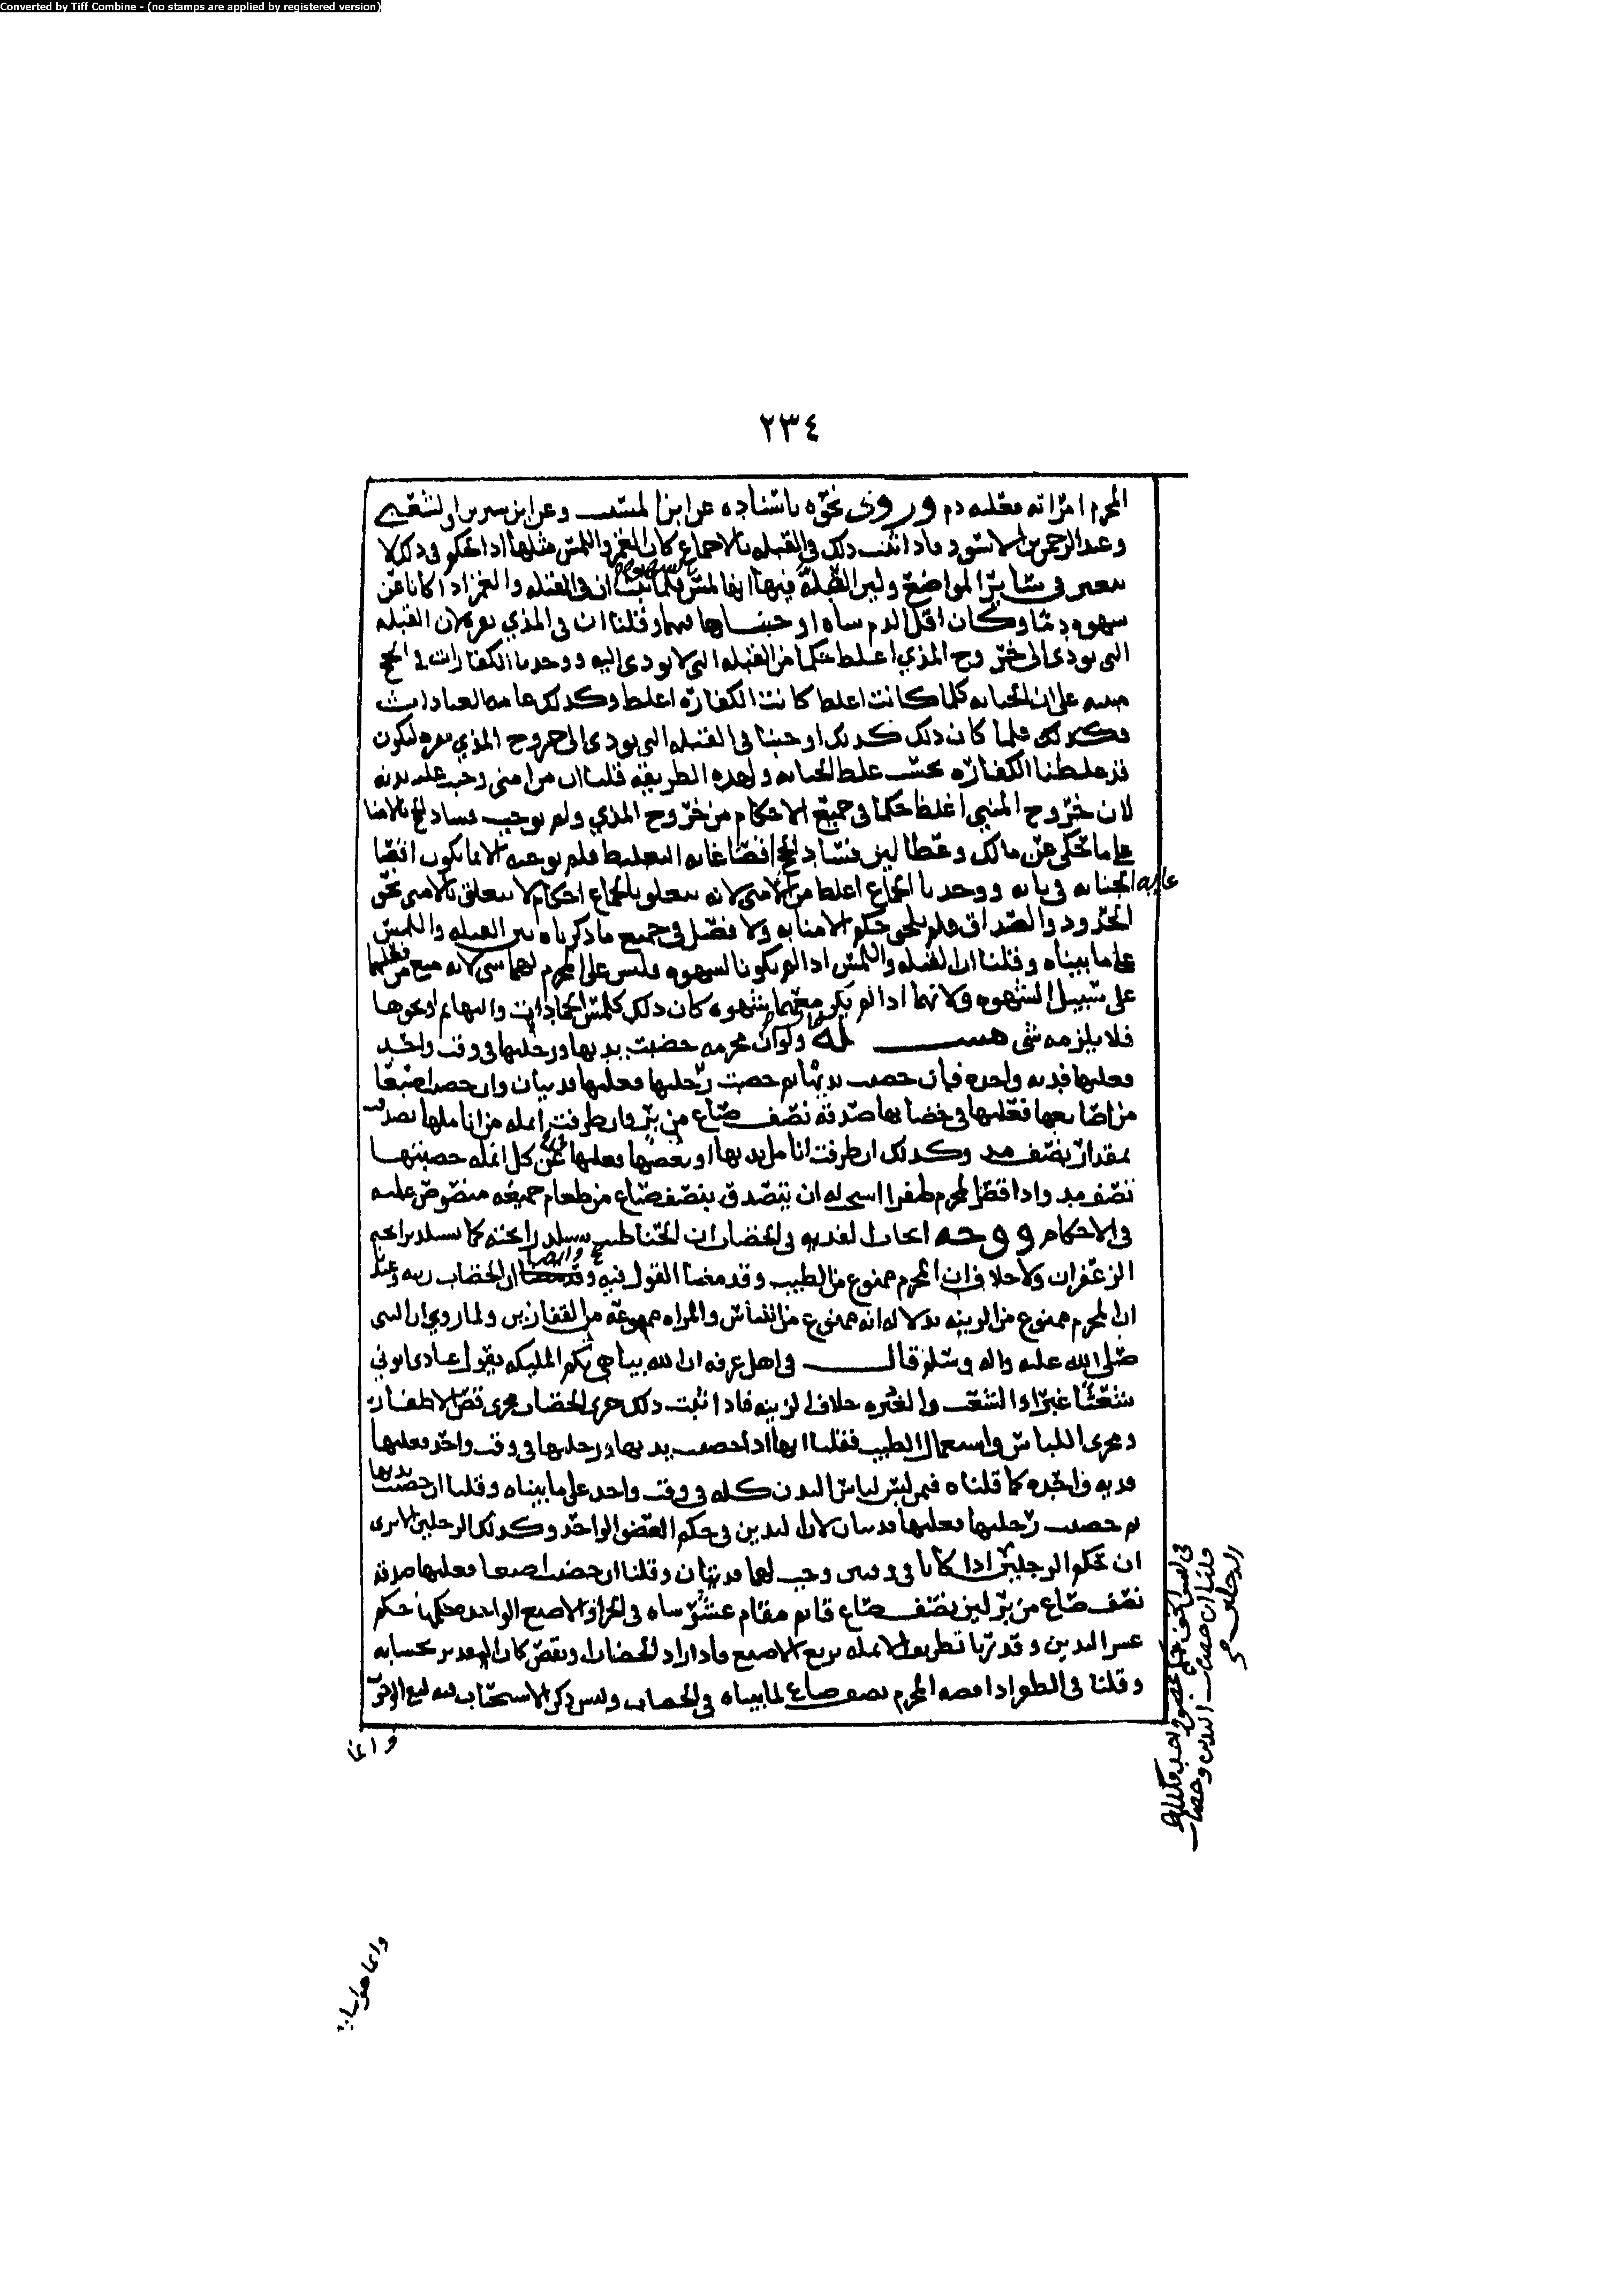 Converted by Tiff Combine - (no stamps are applied by registered version)
٢٣٤
المحرم امراته فعليه دم وروى نحوه باسناده عن ابن المسيب وعن ابن سيرين والشعبي
وعبد الرحمن بن الاسود فاذا ثبت ذلك في القبله بالاجماع كان الغمز واللمس مثلها اذ الحكم في ذلك لا
في سائر المواضع وليس القبلة فيها ايضا لمس فلما ثبت ان في القبله والغمز اذا كانا عن
شهوه دما وكان اقل الدم شاه اوجبناها فيهما وقلنا ان في المذي بقره لان القبله
التي تودي الى خروج المذي اغلظ حكما من القبله التي لا تودي اليه ووجدنا الكفارات في الحج
مبنيه على ان الجنايه كلما كانت اغلظ كانت الكفاره اغلظ وكذلك عامه العبادات
فلما كان ذلك كذلك اوجبنا في القبله التي تودي الى خروج المذي بقره ليكون
قد غلظنا الكفاره بحسب غلظ الجنايه ولهذه الطريقه قلنا ان من امنى وجب عليه بدنه
لان خروج المني اغلظ حكما في جميع الاحكام من خروج المذي ولم نوجب فساد الحج بالامنا
على ما حكي عن مالك وعطا لان فساد الحج اقصا غايه التغليظ فلم نوجبه الا بما يكون اقصا
غايه
الجنايه في بابه ووجدنا الجماع اغلظ من الامنى لانه يتعلق بالجماع احكام لا يتعلق بالامنى نحو
الحدود والصداق فلم يلحق حكم الامنا به ولا فصل في جميع ما ذكرناه بين القبله واللمس
على ما بيناه وقلنا ان القبله واللمس اذا لم يكونا لشهوه فليس على المحرم لهما شي لانه منع من فعلهما
على سبيل الشهوه ولانهما اذا لم يكن معهما شهوه كان ذلك كلمس الجمادات والبهايم ونحوها
فلا يلزمه شي مسـلـه ولو ان محرمه خضبت يديها ورجليها في وقت واحد
فعليها فديه واحده فان خضبت يديها ثم خضبت رجليها فعليها فديتان وان خضبت اصبعا
من اصابعها فعليها في خضابها صدقه نصف صاع من بر وان طرفت انمله من اناملها تصدقت
بمقدار نصف مد وكذلك ان طرفت انامل يديها او بعضها فعليها عن كل انمله خضبتها
نصف مد واذا قص المحرم ظفرا استحب له ان يتصدق بنصف صاع من طعام جميعه منصوص عليه
في الاحكام ووجه ايجاب الفديه في الخضاب ان الحنا طيب يستلذ رائحته كما يستلذ برائحه
الزعفران ولا خلاف ان المحرم ممنوع من الطيب وقد مضا القول فيه وايضا ان الخضاب زينه وعند
ان المحرم ممنوع من الزينه بدلاله انه ممنوع من اللباس والمراه ممنوعه من القفازين ولما روي ان النبي
صلى الله عليه واله وسلم قال في اهل عرفه ان الله يباهي بكم المليكه يقول عبادي اتوني
شعثا غبرا والشعث والغبره خلاف الزينه فاذا ثبت ذلك جرى الخضاب مجرى قص الاظفار
ومجرى اللباس واستعمال الطيب فقلنا انها اذا خضبت يديها ورجليها في وقت واحد فعليها
فديه واحده كما قلناه فيمن لبس لباس البدن كله في وقت واحد على ما بيناه وقلنا ان خضبت يديها
ثم خضبت رجليها فعليها فديتان لان اليدين في حكم العضو الواحد وكذلك الرجلين الا ترى
ان حكم الرجلين اذا كانا في وقتين وجب لهما فديتان وقلنا ان خضبت اصبعا فعليها صدقه
نصف صاع من بر لان نصف صاع قائم مقام عشر شاه في الجزاء والاصبع الواحده حكمها حكم
عشر اليدين وقدرنا تطريف الانمله بربع الاصبع فاذا زاد الخضاب او نقص كان التقدير بحسابه
وقلنا في الظفر اذا قصه المحرم نصف صاع لما بيناه في الخضاب وليس ذكر الاستحباب فيه لمنع الوجوب
وانما